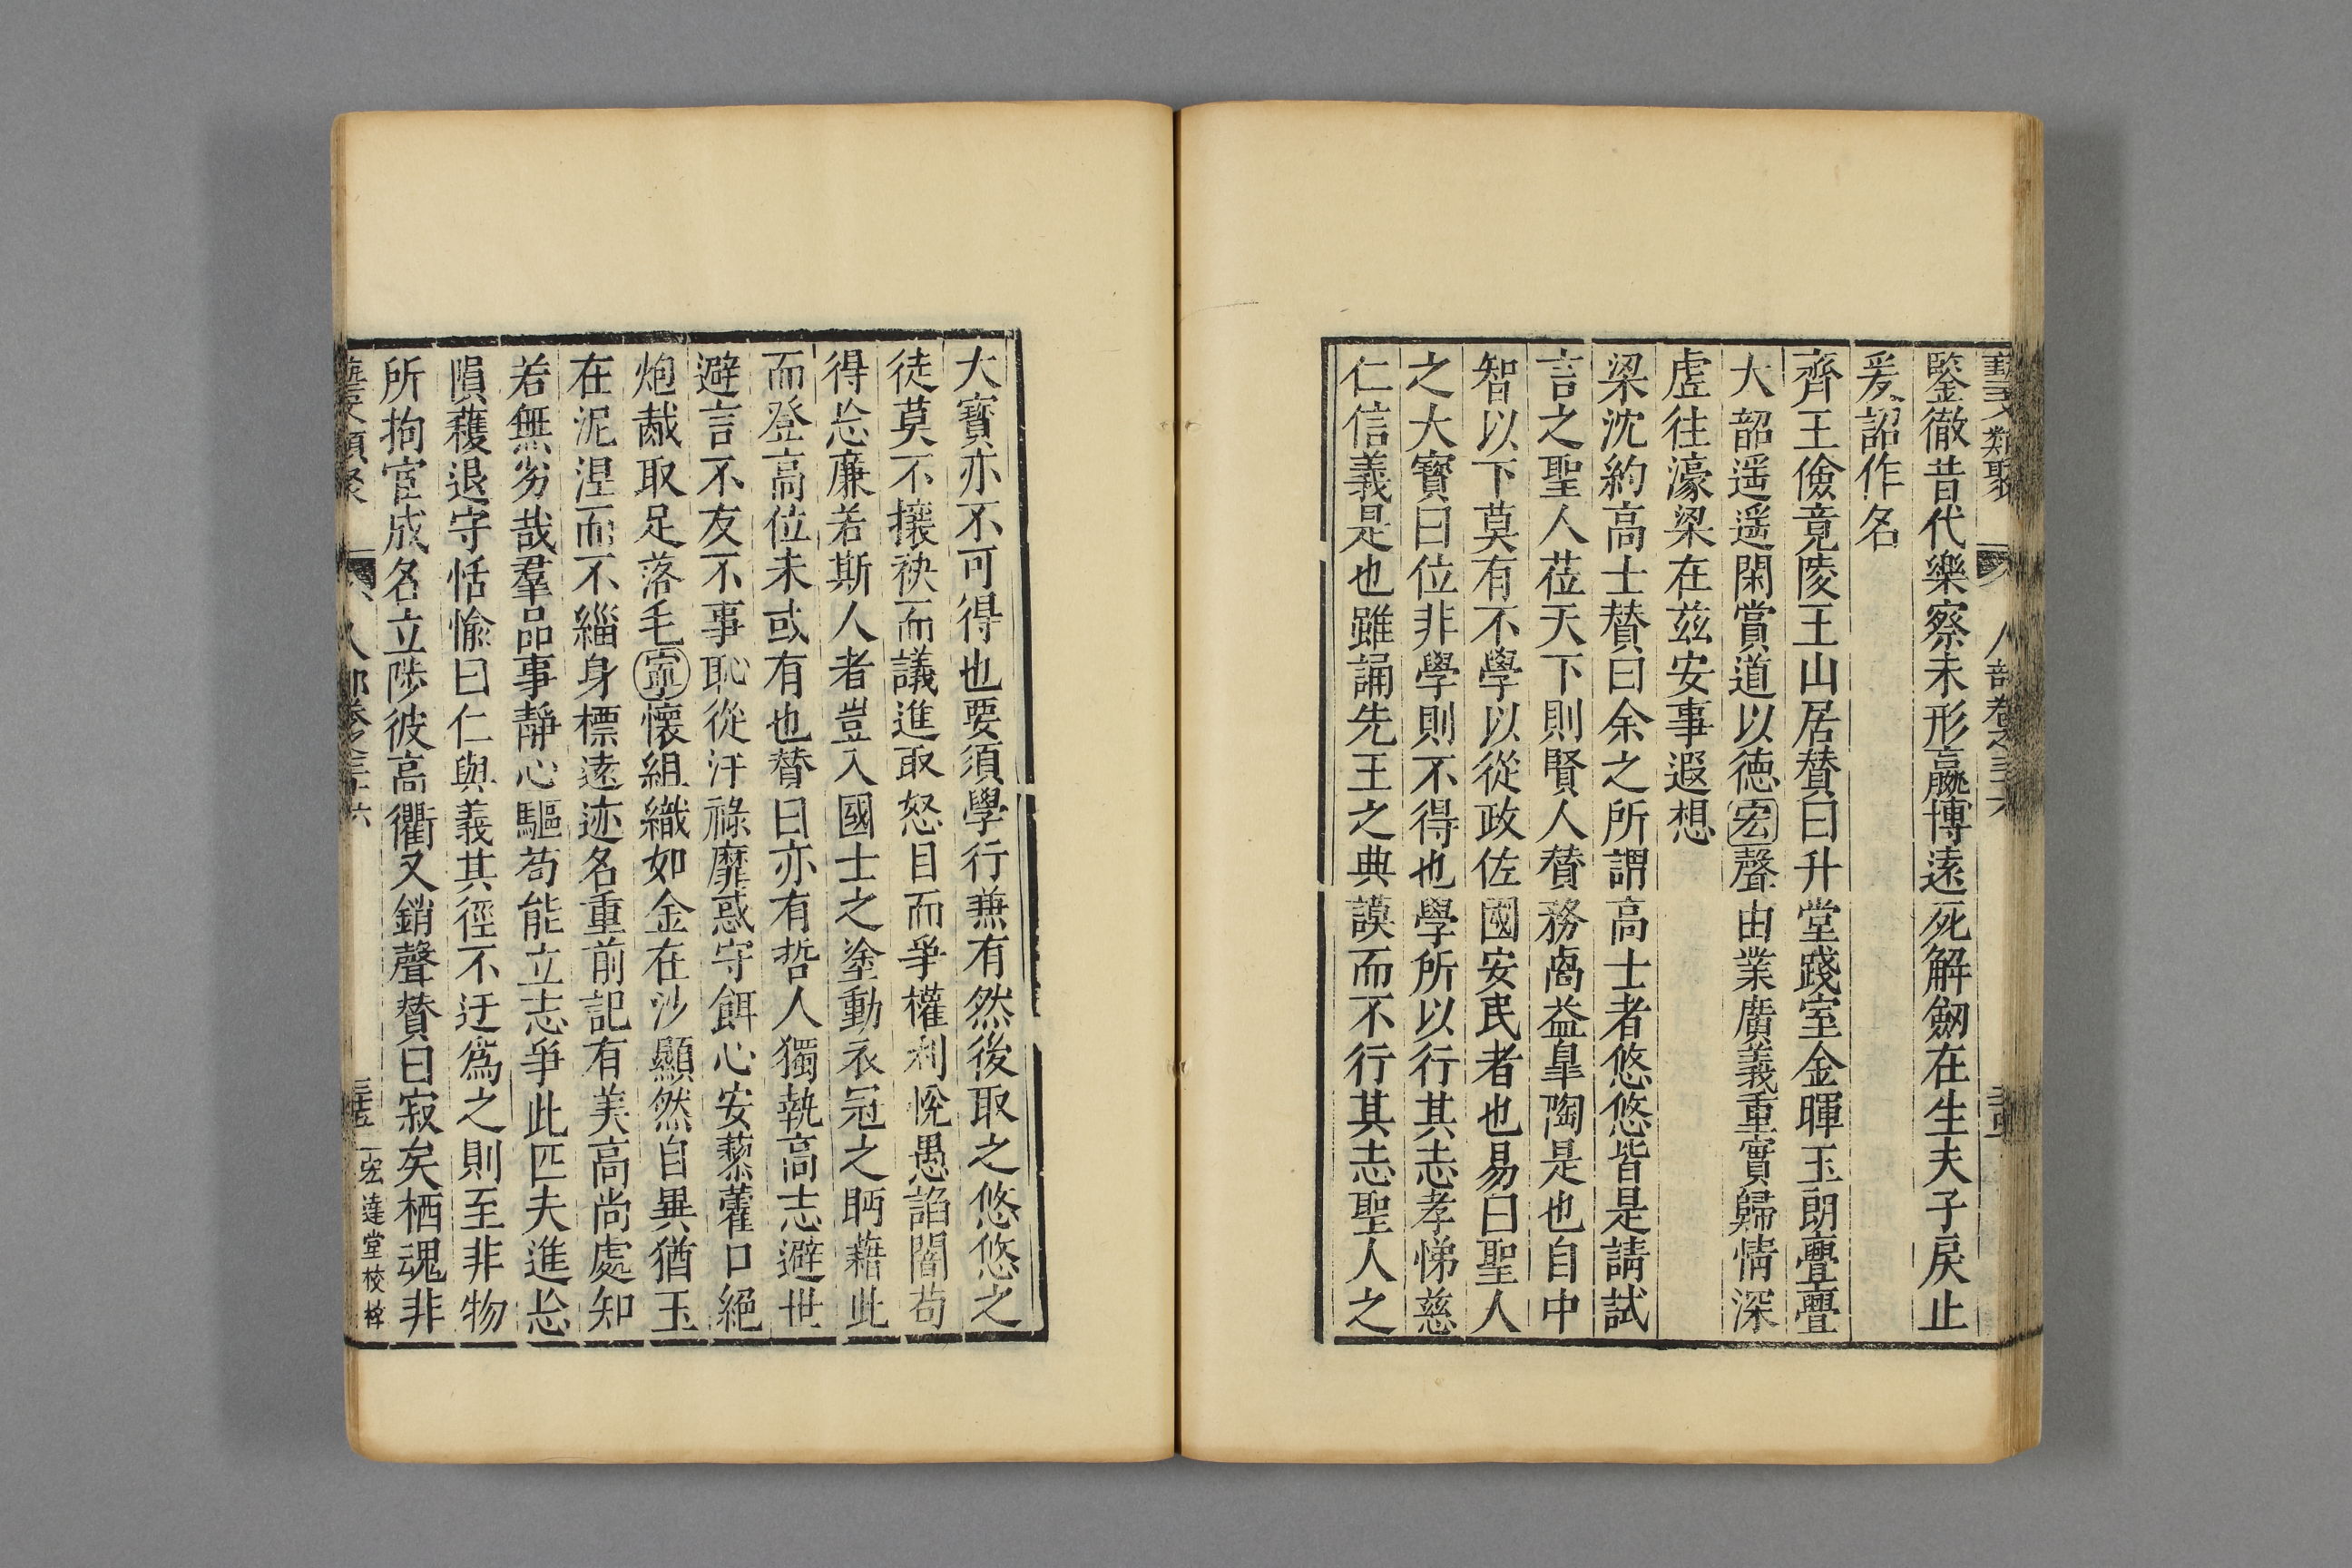 藝文類聚 人部卷之三十六
鑒徹昔代樂察未形嬴博遠死解劒在生夫子戾止
爰詔作名
齊王儉竟陵王山居賛曰升堂踐室金暉玉朗亹亹
大韶遥遥閑賞道以德宏聲由業廣義重實歸情深
虛往濠梁在茲安事遐想
梁沈約高士賛曰余之所謂高士者悠悠皆是請試
言之聖人莅天下則賢人賛務卨益臯陶是也自中
智以下莫有不學以從政佐國安民者也易曰聖人
之大寶曰位非學則不得也學所以行其志孝悌慈
仁信義是也雖誦先王之典謨而不行其志聖人之
大寶亦不可得也要須學行兼有然後取之悠悠之
徒莫不攘袂而議進取怒目而爭權利悅愚諂闇苟
得忘廉若斯人者豈入國士之塗動衣冠之眄藉此
而登高位未或有也賛曰亦有哲人獨執高志避世
避言不友不事恥從汙祿靡惑守餌心安藜藿口絕
炮胾取足落毛寧懷組織如金在沙顯然自異猶玉
在泥涅而不緇身標遠迹名重前記有美高尚處知
若無劣哉羣品事靜心驅苟能立志爭此匹夫進忘
隕穫退守恬愉曰仁與義其徑不迂爲之則至非物
所拘宦成名立陟彼高衢又銷聲賛曰寂矣栖魂非
藝文類聚 人部卷之三十六 宏達堂校梓